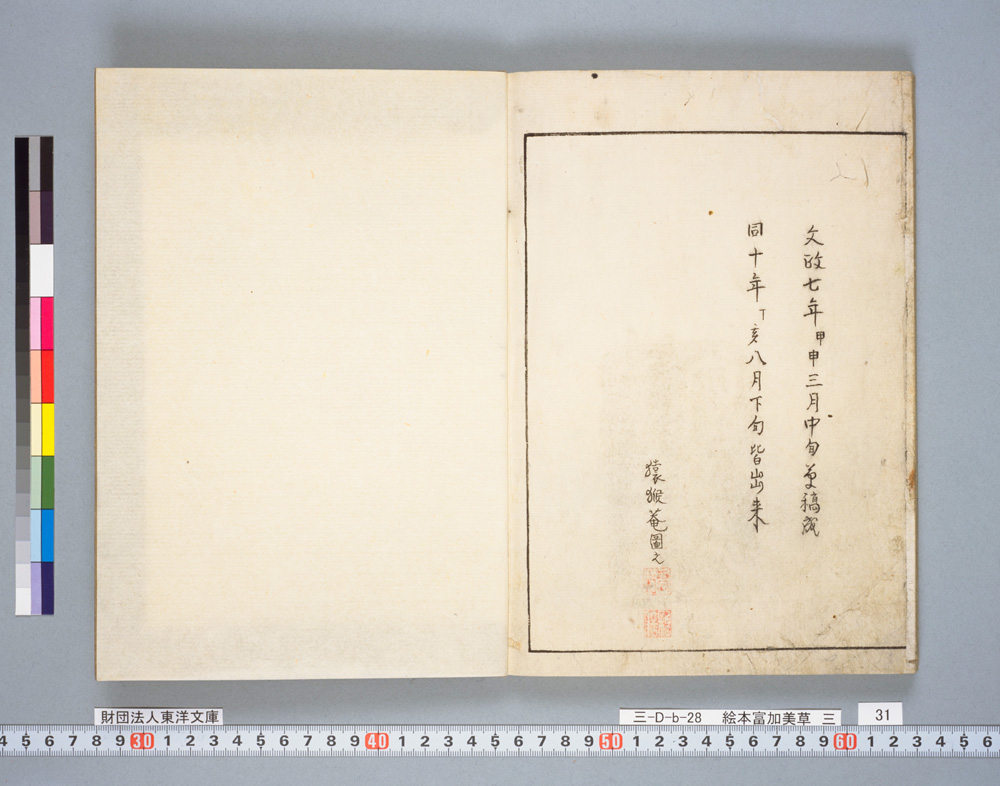 文政七年甲申三月中旬草稿成
同十年丁亥八月下旬皆出来
猿猴菴圖之
財団法人東洋文庫
三-D-b-28 絵本富加美草 三
31
4 5 6 7 8 9 30 1 2 3 4 5 6 7 8 9 40 1 2 3 4 5 6 7 8 9 50 1 2 3 4 5 6 7 8 9 60 1 2 3 4 5 6